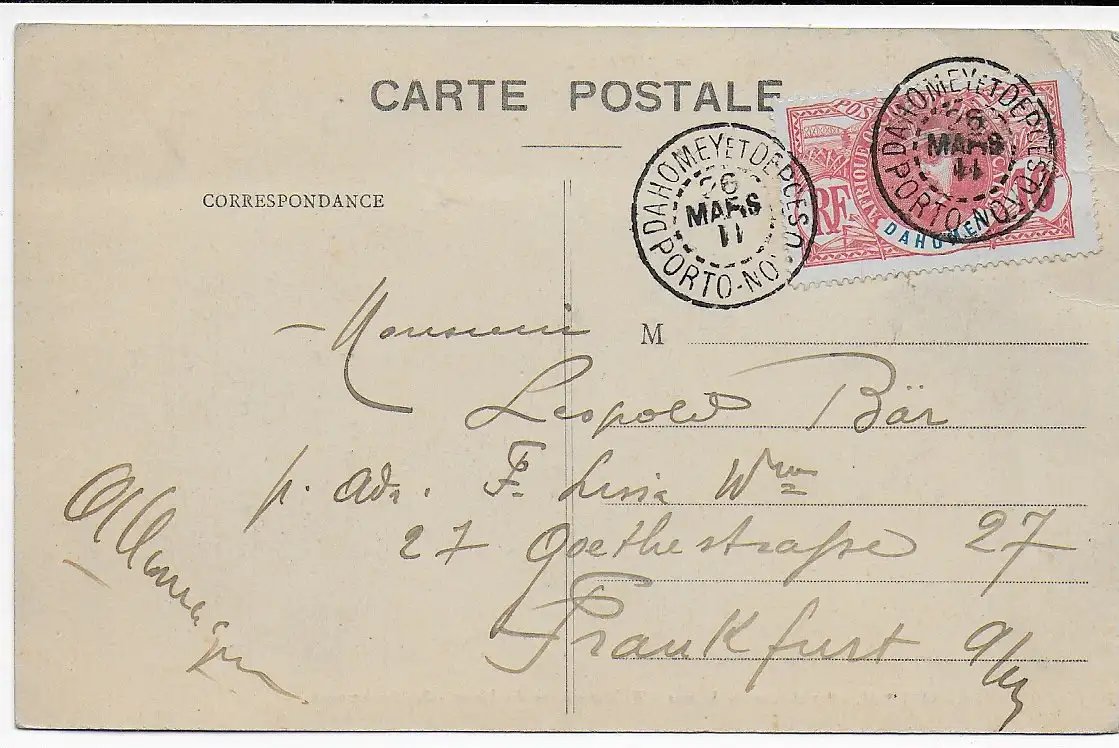 CARTE POSTALE
CORRESPONDANCE
DAHOMEY ET DEPCES
26
MARS
11
PORTO-NO
DAHOMEY ET DEPCES
26
MARS
11
PORTO-NOVO
POSTES
AFRIQUE
RF
10
DAHOMEY
M
Monsieur
Leopold Bär
p. Adr. F. Wwe
27 Goethestraße 27
Frankfurt a/M
Allemagne